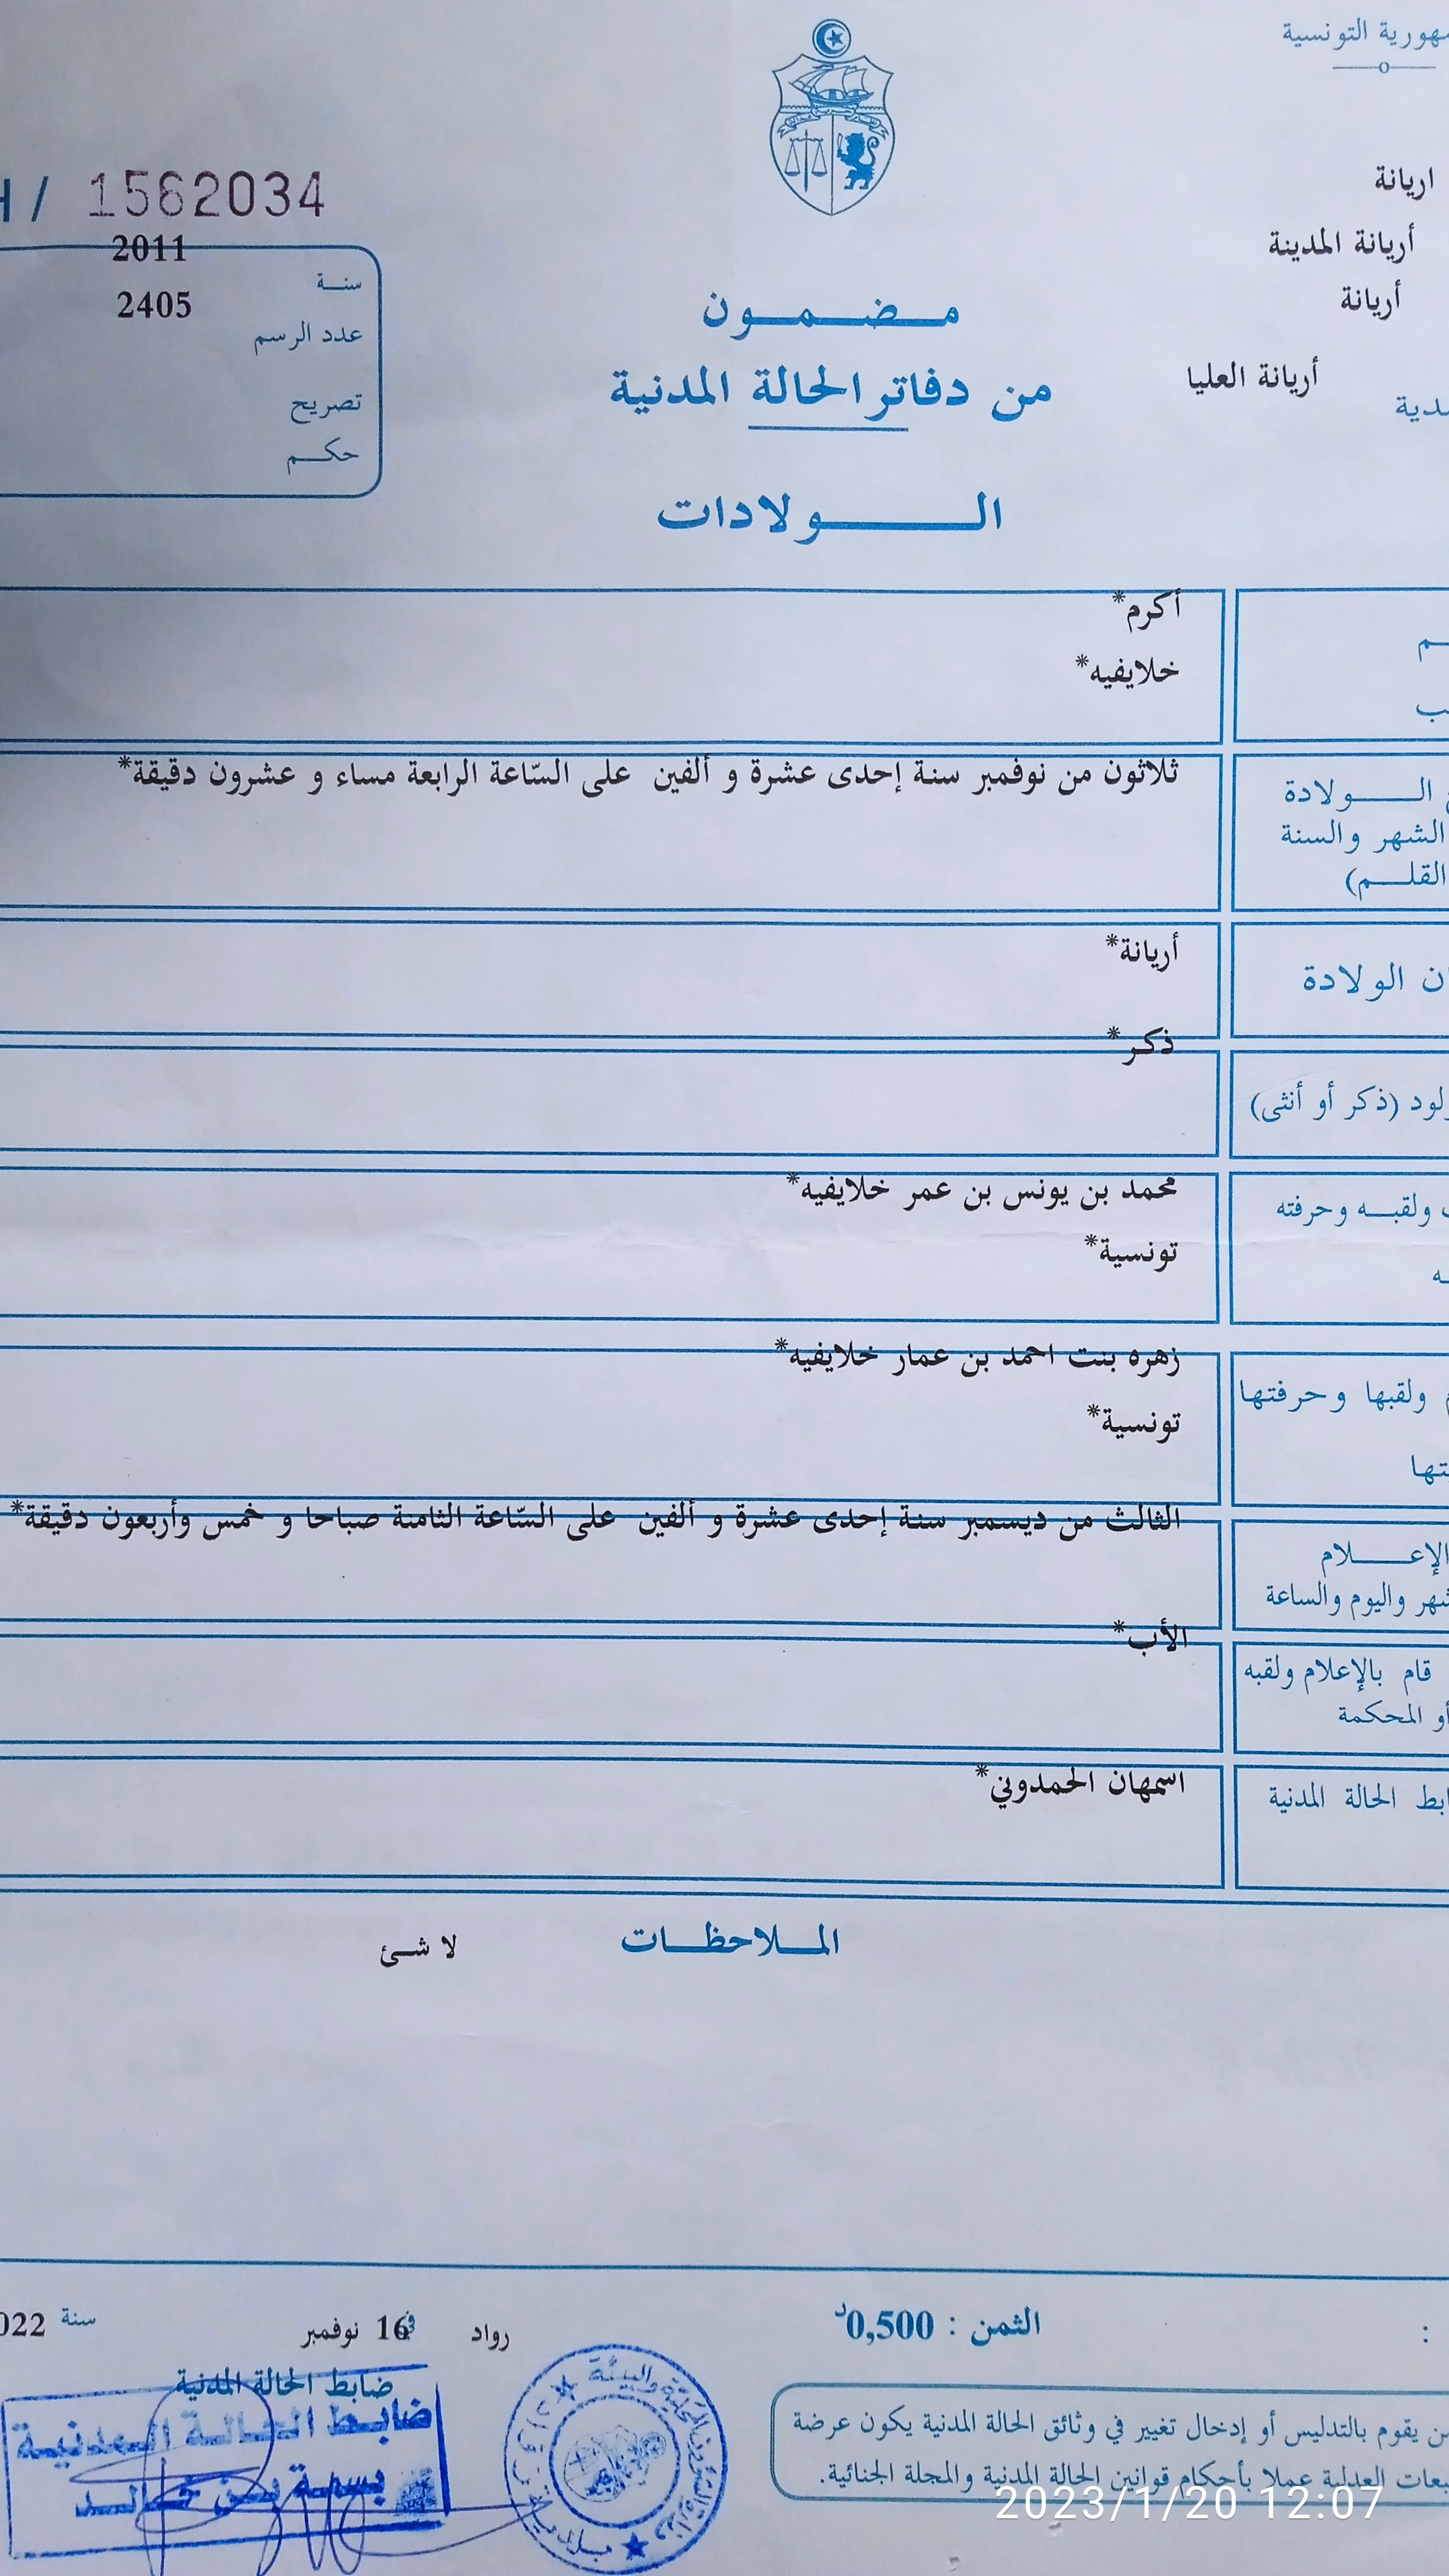 التونسية
اريانة
أريانة المدينة
أريانة
أريانة العليا
/ 1562034
2011
سنة
2405
عدد الرسم
تصريح
حكم
مضمون
من دفاتر الحالة المدنية
الولادات
أكرم*
خلايفيه*
ثلاثون من نوفمبر سنة إحدى عشرة و ألفين على السّاعة الرابعة مساء و عشرون دقيقة*
الولادة
الشهر والسنة
القلم)
أريانة*
الولادة
ذكر*
(ذكر أو أنثى)
محمد بن يونس بن عمر خلايفيه*
ولقبه وحرفته
تونسية*
زهره بنت احمد بن عمار خلايفيه*
ولقبها وحرفتها
تونسية*
الثالث من ديسمبر سنة إحدى عشرة و ألفين على السّاعة الثامنة صباحا و خمس وأربعون دقيقة*
الإعلام
واليوم والساعة
الأب*
قام بالإعلام ولقبه
أو المحكمة
اسمهان الحمدوني*
الحالة المدنية
الملاحظات
لا شئ
الثمن : 0,500د
رواد في 16 نوفمبر سنة 022
ضابط الحالة المدنية
ضابط الحالة المدنية
بسمة بن خالد
يقوم بالتدليس أو إدخال تغيير في وثائق الحالة المدنية يكون عرضة
العدلية عملا بأحكام قوانين الحالة المدنية والمجلة الجنائية.
2023/1/20 12:07